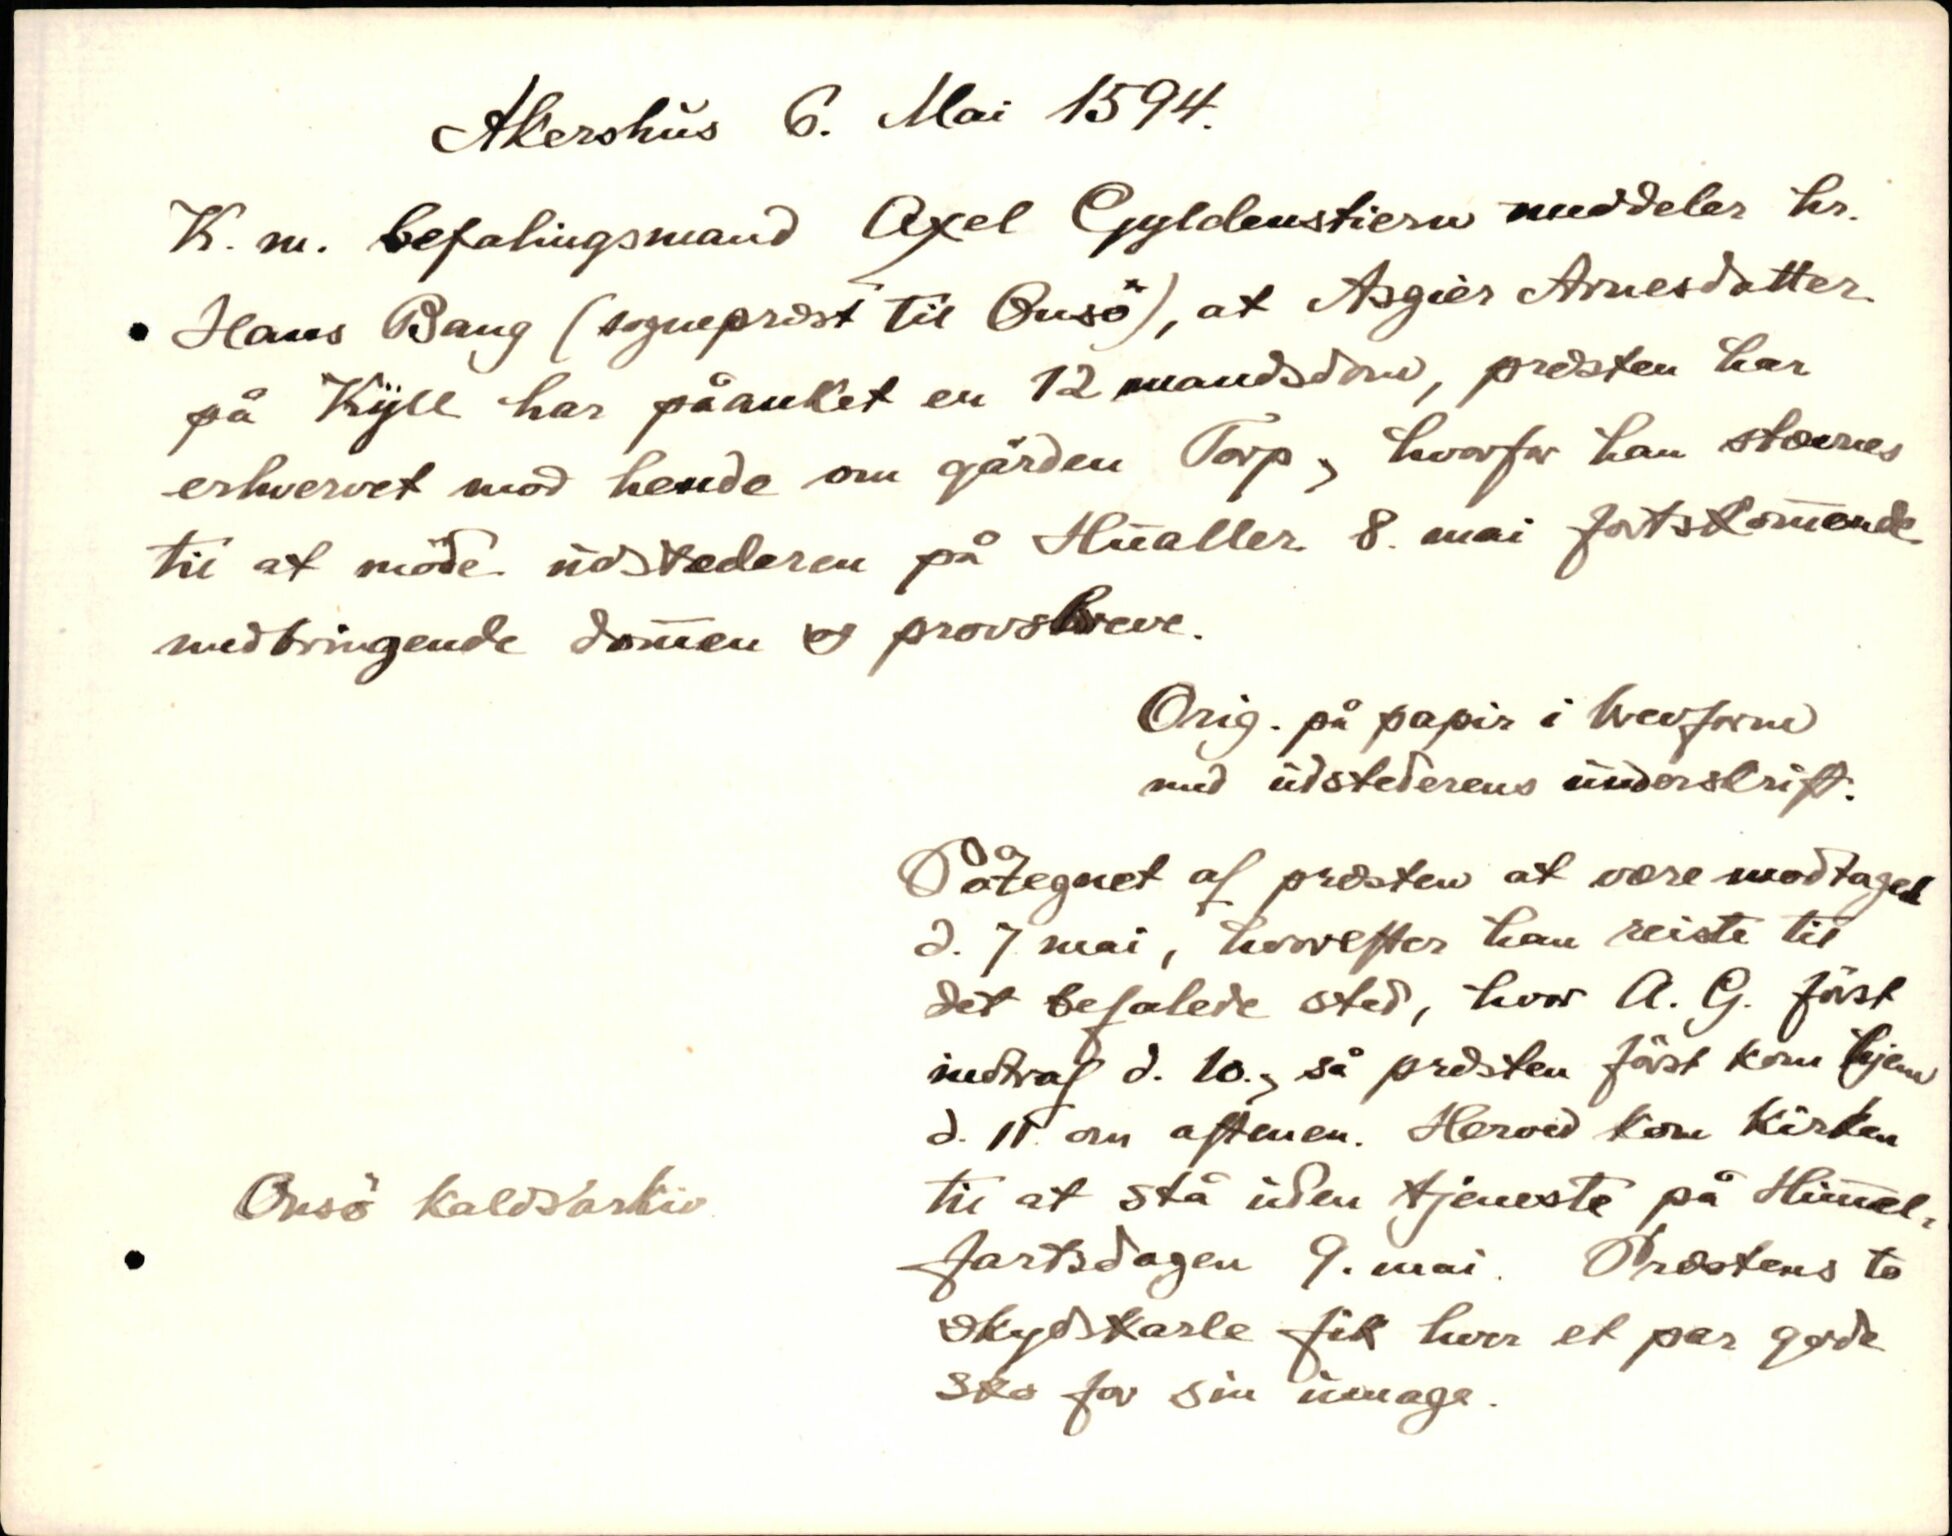 Akershus 6. Mai 1594.
K. m. befalingsmand Axel Gyldenstiern meddeler hr.
Hans Bang (sogneprest til Onsö), at Asgier Arnesdatter
på Kÿll har påanket en 12 mandsdom, presten har
erhvervet mod hende om gården Torp, hvorfor han stævnes
til at möde udstederen på Hualler 8. mai førstkom̅ende
medbringende dom̅en og provsbreve.
Orig. på papir i brevform
med udstederens underskrift.
Påtegnet af presten at være modtaget
d. 7 mai, hvorefter han reiste til
det befalede sted, hvor A. G. först
indtraf d. 10., så presten först kom hjem
d. 11. om aftenen. Herved kom kirken
til at stå uden tjeneste på Him̅el-
fartsdagen 9. mai. Prestens to
skydskarle fik hver et par gode
sko for sin umage.
Onsö kaldsarkiv